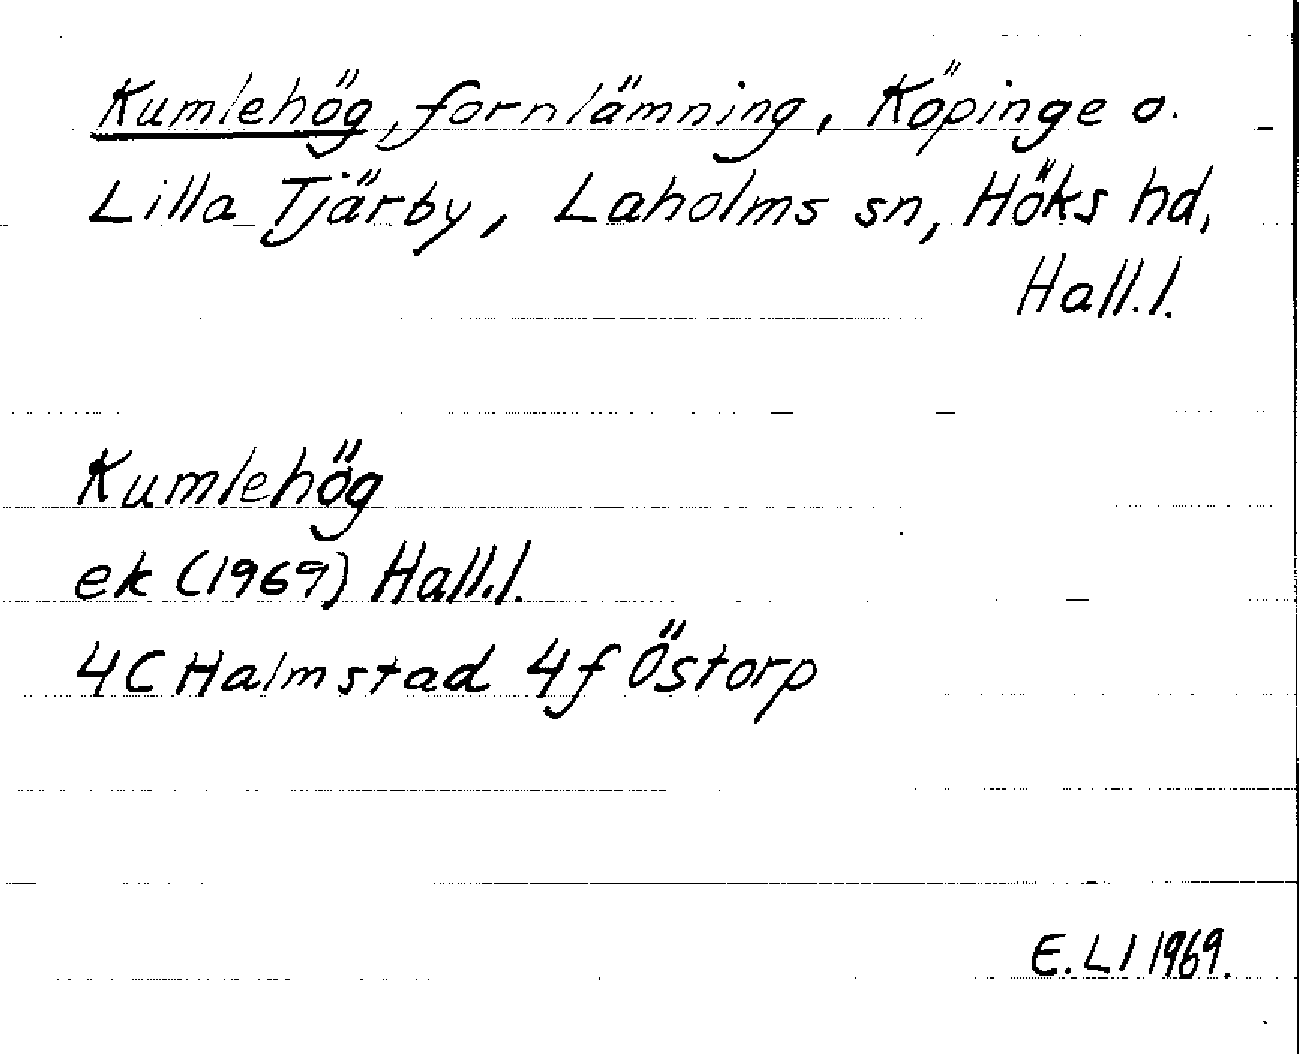 Kumlehög, fornlämning, Köpinge o.
Lilla Tjärby, Laholms sn, Höks hd,
Hall.l.
Kumlehög
ek (1969) Hall.l.
4C Halmstad 4f Östorp
E. Ll 1969.